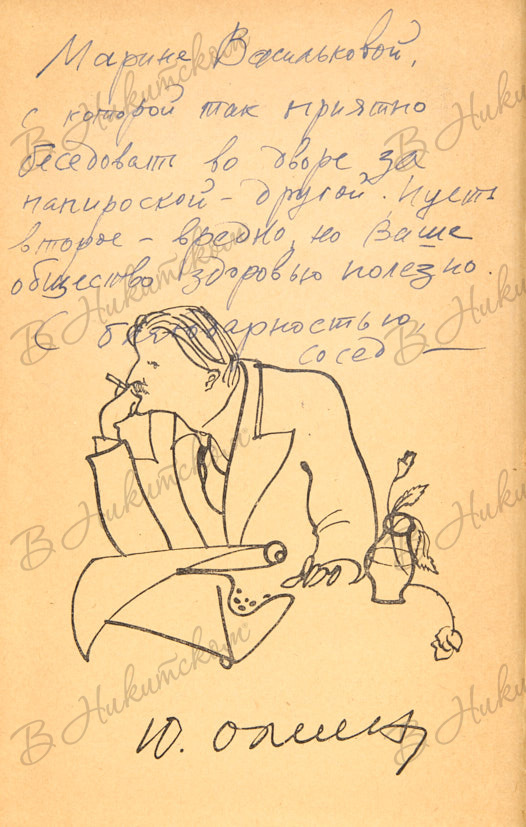 Марине Васильковой,
с которой так приятно
беседовать во дворе за
папироской – другой. Пусть
второе – вредно, но Ваше
общество здоровью полезно.
С благодарностью,
сосед —
Ю.
В Никитском
В Никитском
В Никитском
В Никитском
В Никитском
В Никитском
В Никитском
В Никитском